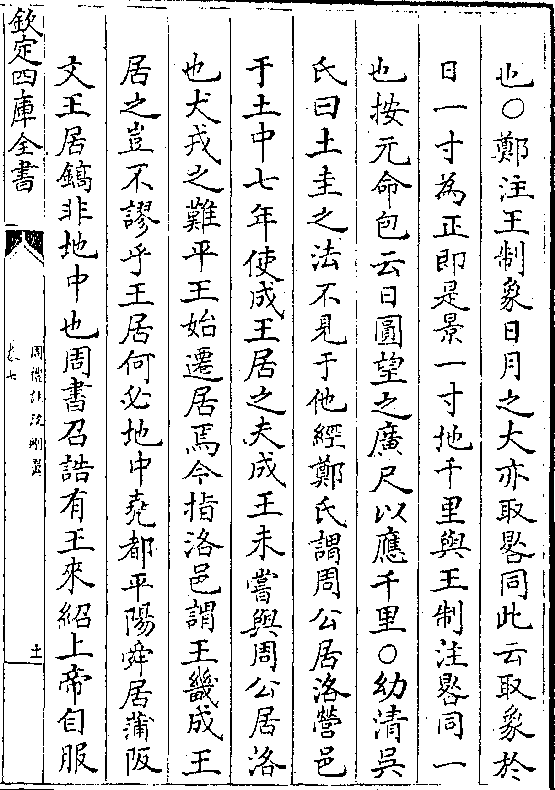 也○鄭注王制象日月之大亦取晷同此云取象於
日一寸為正即是景一寸地千里與王制注晷同一
也按元命包云日圓望之廣尺以應千里○幼清吳
氏曰土圭之法不見于他經鄭氏謂周公居洛營邑
于土中七年使成王居之夫成王未嘗與周公居洛
也犬戎之難平王始遷居焉今指洛邑謂王畿成王
居之豈不謬乎王居何必地中堯都平陽舜居蒲阪
文王居鎬非地中也周書召誥有王來紹上帝自服
欽定四庫全書
周禮註疏刪翼
卷七
十